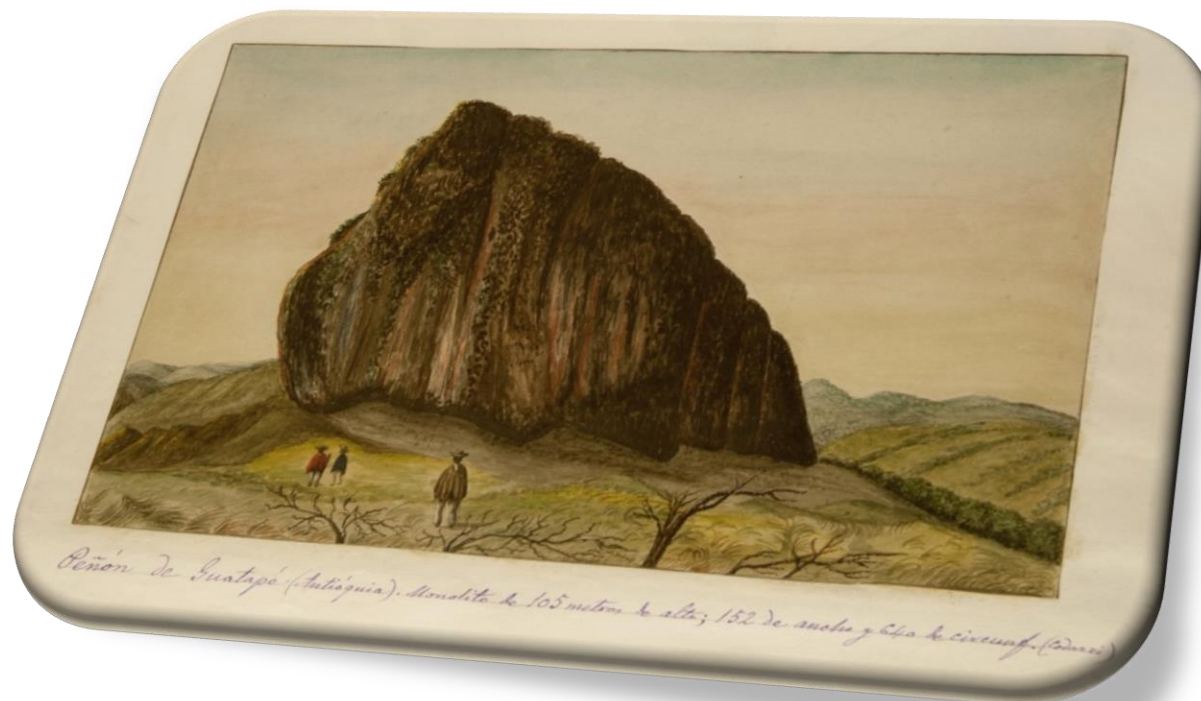 Peñón de Guatapé (Antióquia). Monolito de 105 metros de alto; 152 de ancho y 640 de circunf. (Codazzi)